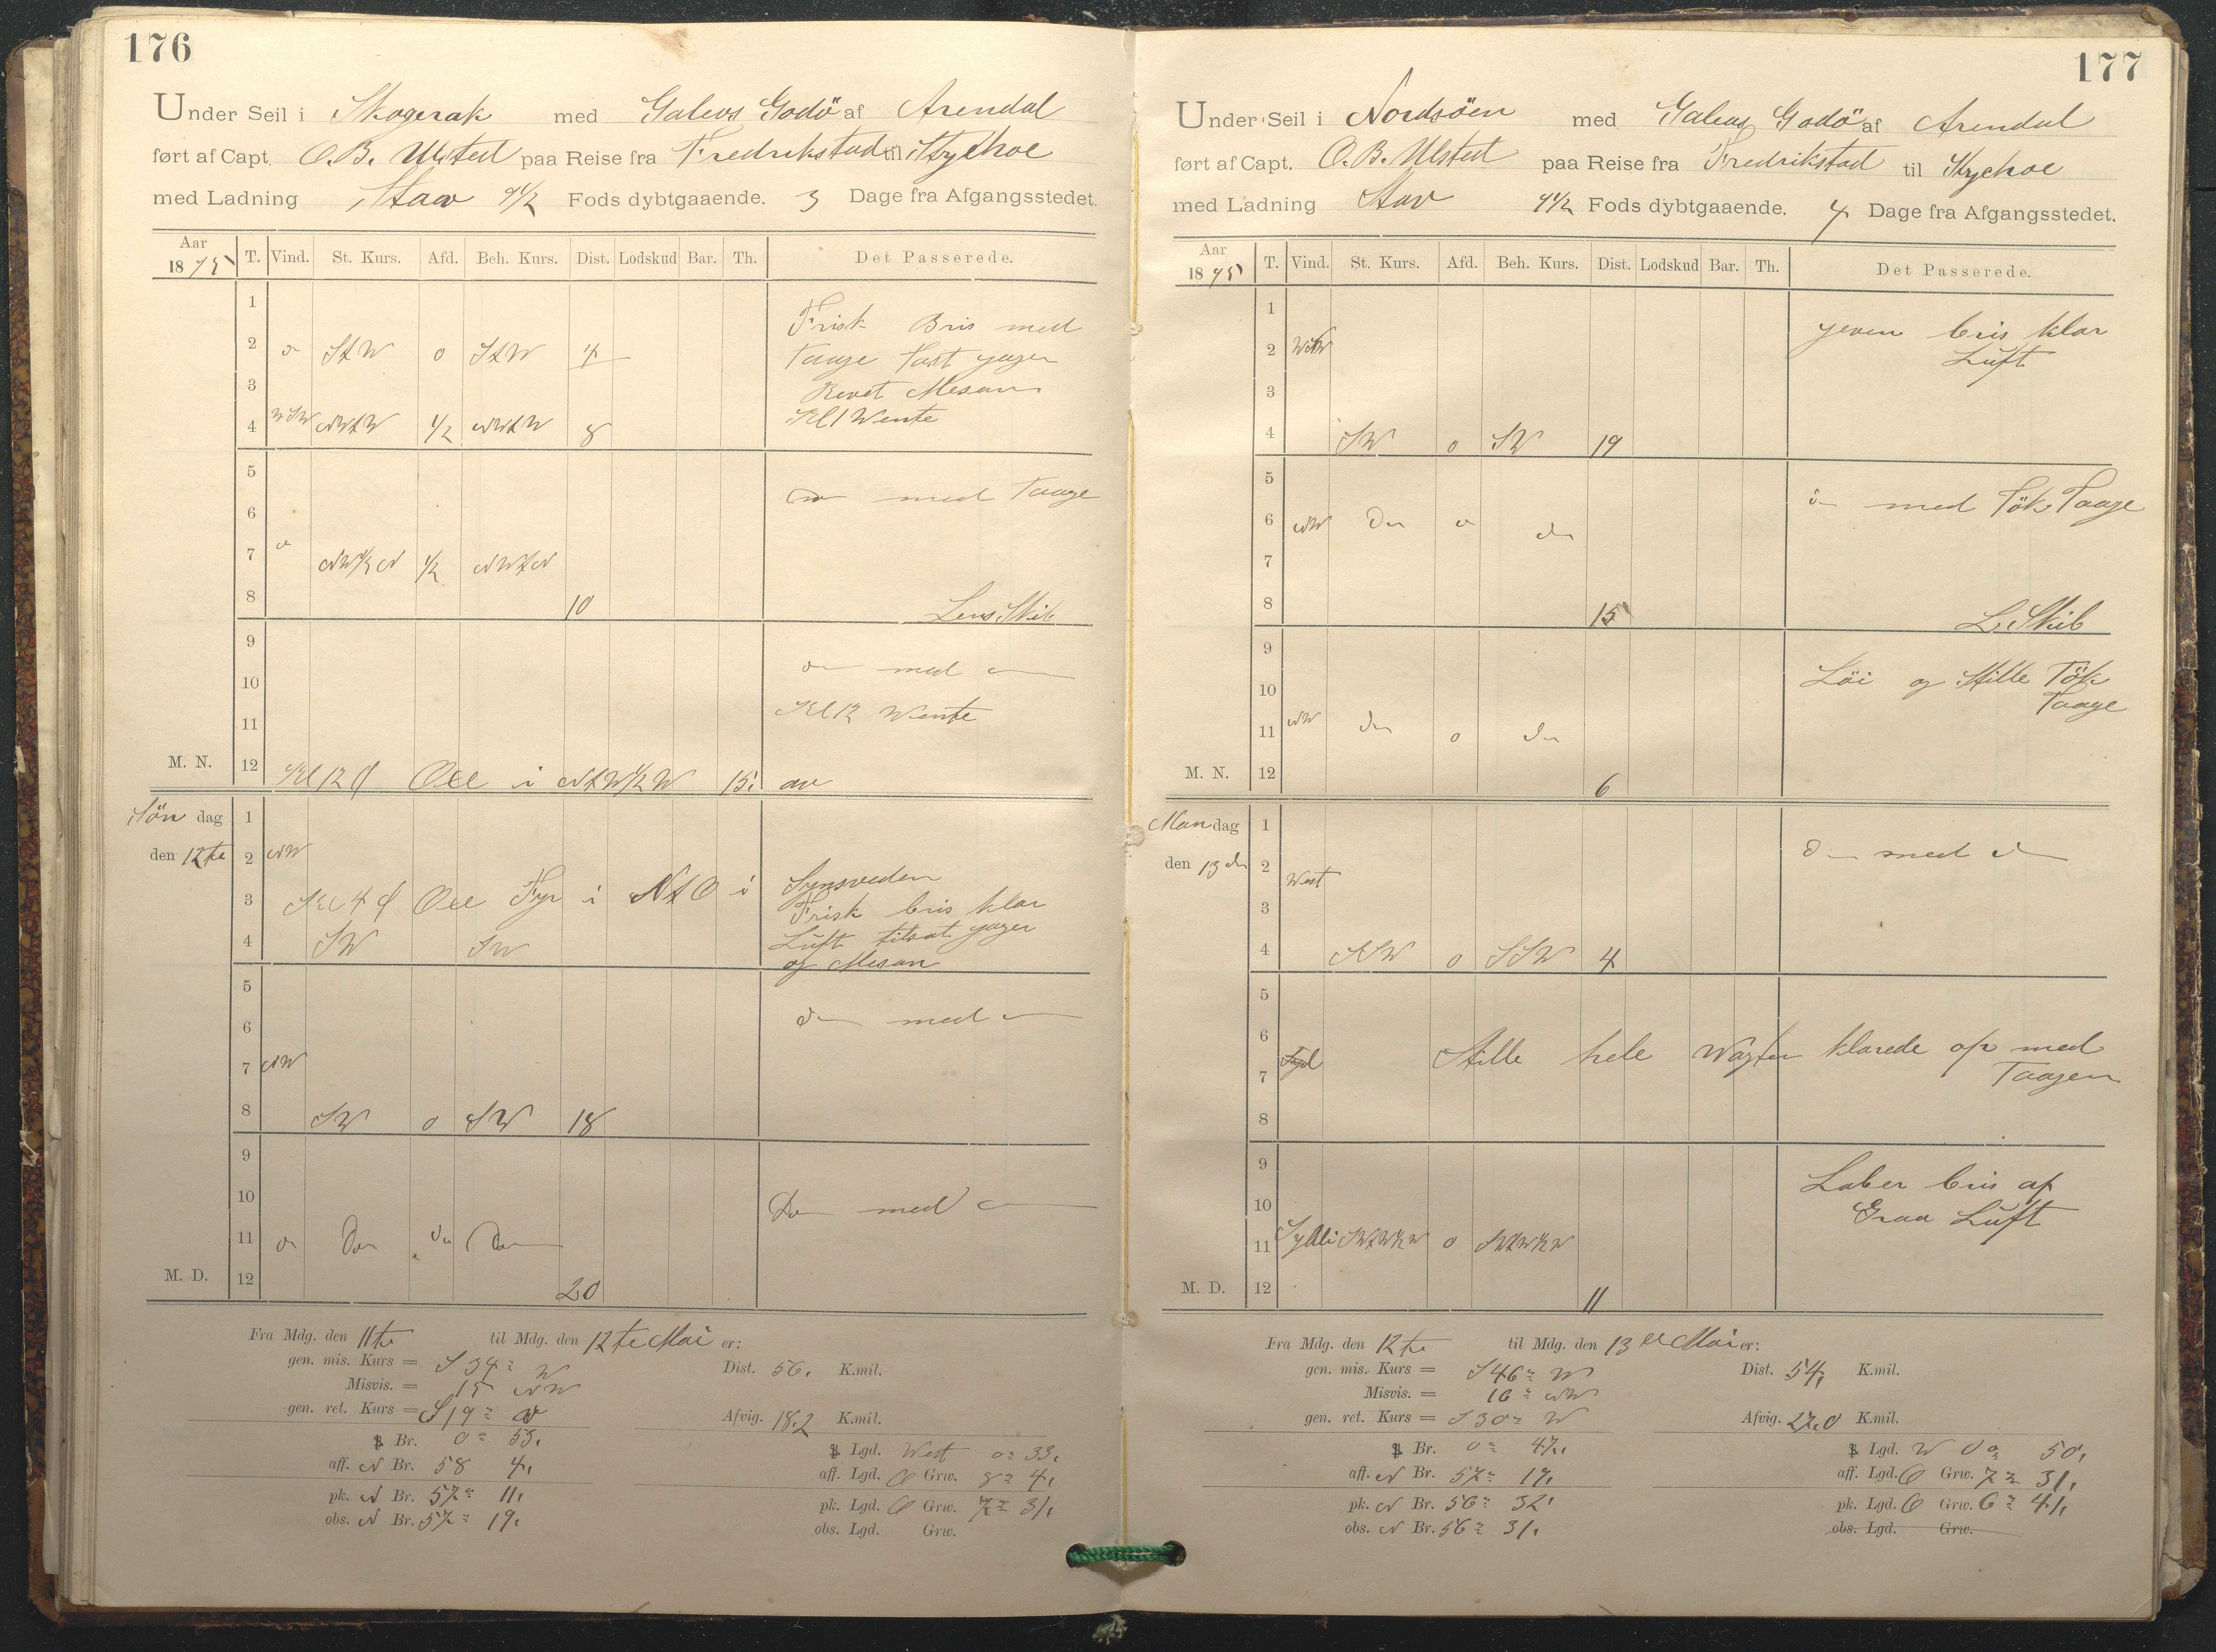 176
Under Seil i Skagerak med Galeas Godö af Arendal
ført af Capt. O. B. Ulsted paa Reise fra Fredrikstad til
med Ladning Stav 9 1/2 Fods dybtgaaende. 3 Dage fra Afgangsstedet.
Aar 1895 T. Vind. St. Kurs. Afd. Beh. Kurs. Dist. Lodskud Bar. Th. Det Passerede.
1
Frisk Bris med
2 StW 0 StW 4 Taage fast jager
3 Revet Mesan
4 WSW NWtW 1/2 NWtW 8 Kl 1 Wente
5
med Taage
6
7 NW 1/2 N 1/2 NWtN
8 10 Lens Skib
9
med
10
Kl 12 Wente
11
M. N. 12 Kl 12 i NtW 1/2 W 15' av
Söndag 1
den 12te 2 NW
Synsveden
3 Kl 4 Fyr i NtO i Frisk bris klar
4 SW SW Luft tilsat jager
og Mesan
5
6 med
7 NW
8 SW 0 SW 18
9
10 Do med
11 Do do Do
M. D. 12 20
Fra Mdg. den 11te til Mdg. den 12te Mai er:
gen. mis. Kurs = S 34° W Dist. 56, K.mil.
Misvis. = 15 NW
gen. ret. Kurs = S 19° W Afvig. 18.2 K.mil.
Br. 0° 53, Lgd. West 0° 33,
aff. N Br. 58 4, aff. Lgd. O Grw. 8° 4,
pk. N Br. 57° 11, pk. Lgd. O Grw. 7° 31,
obs. N Br. 57° 19, obs. Lgd. Grw.
177
Under Seil i Nordsöen med Galeas Godö af Arendal
ført af Capt. O. B. Ulsted paa Reise fra Fredrikstad til
med Ladning Stav 9 1/2 Fods dybtgaaende. 4 Dage fra Afgangsstedet.
Aar 1895 T. Vind. St. Kurs. Afd. Beh. Kurs. Dist. Lodskud Bar. Th. Det Passerede.
1
jeven bris klar
2 Luft
3
4 SW 0 SW 19
5
med Tök Taage
6 NW Do do
7
8 15 L. Skib
9
Löi og Stille Tök
10 Taage
11 NW do 0 do
M. N. 12 6
Mandag 1
med
den 13de 2 West
3
4 SSW 0 SSW 4
5
6 Stille hele Wagten klarede op med
7 Taagen
8
9
Laber bris af
10 Graa Luft
11 0
M. D. 12 11
Fra Mdg. den 12te til Mdg. den 13de Mai er:
gen. mis. Kurs = S 46° W Dist. 54, K.mil.
Misvis. = 16° NW
gen. ret. Kurs = S 30° W Afvig. 27,0 K.mil.
Br. 0° 47, Lgd. W 0° 50,
aff. N Br. 57° 19, aff. Lgd. O Grw. 7° 31,
pk. N Br. 56° 32, pk. Lgd. O Grw. 6° 41,
obs. N Br. 56° 31, obs. Lgd. Grw.